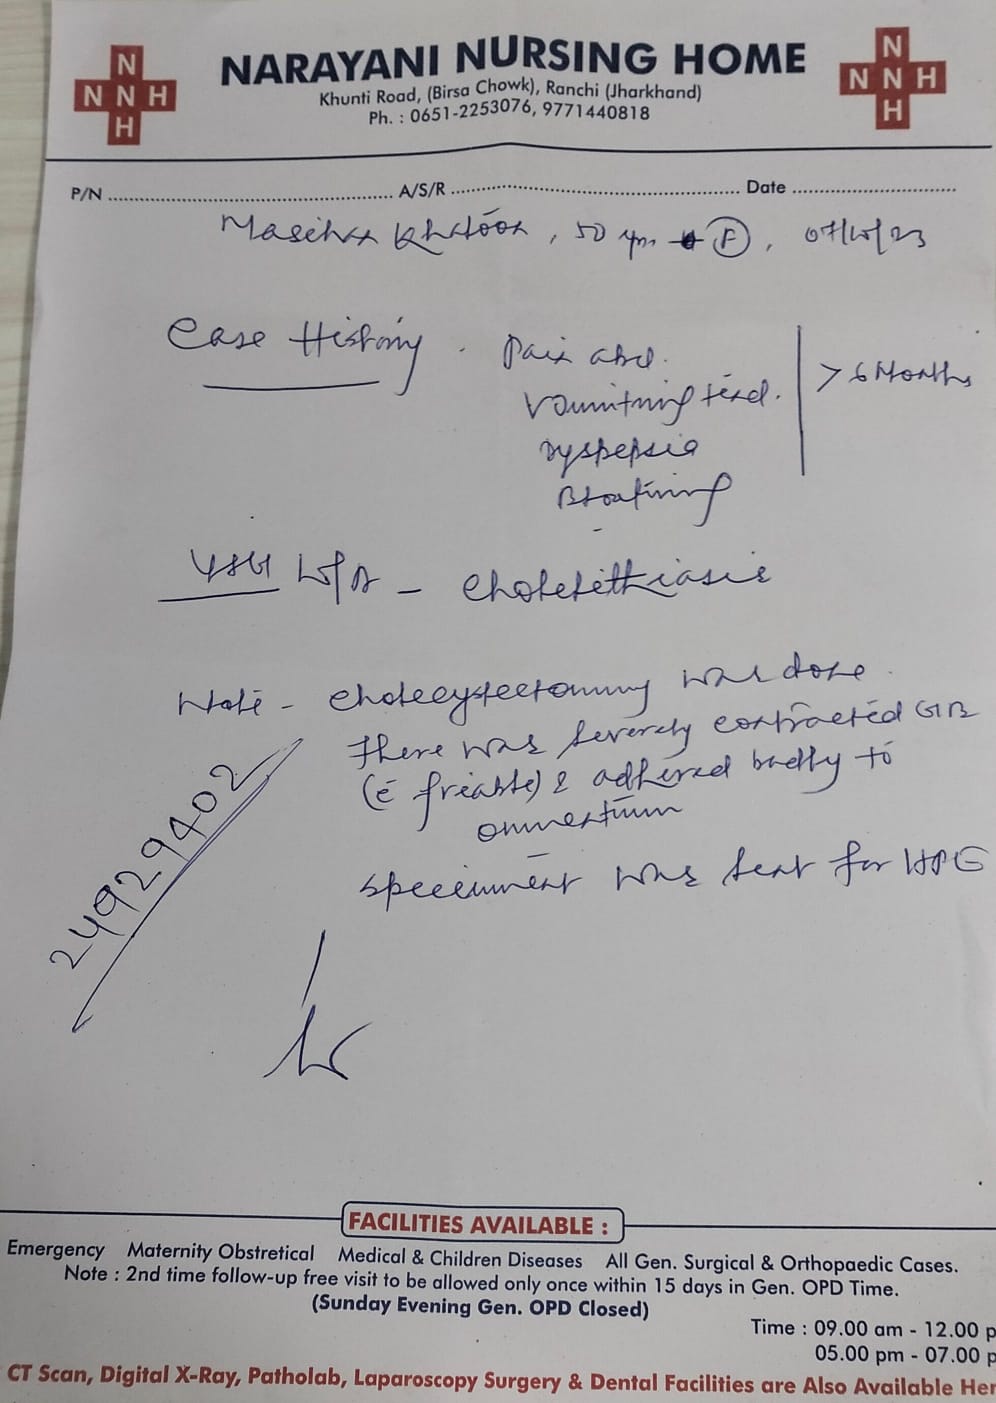 N
N N H
H
NARAYANI NURSING HOME
Khunti Road, (Birsa Chowk), Ranchi (Jharkhand)
Ph. : 0651-2253076, 9771440818
N
N N H
H
P/N ........ A/S/R ........ Date ........
Khatoon, 50 yrs F,
Case History . Pain abd.
Voumitning tend.
Dyspepsia
Bloatining
> 6 Months
USG W/A - Cholelithiasis
Note - Cholecystectomy was done.
There was severely contracted GB
(c̄ friable) & adhered badly to
ommentum
Specimment was sent for HPE
24929402
FACILITIES AVAILABLE :
Emergency Maternity Obstretical Medical & Children Diseases All Gen. Surgical & Orthopaedic Cases.
Note : 2nd time follow-up free visit to be allowed only once within 15 days in Gen. OPD Time.
(Sunday Evening Gen. OPD Closed)
Time : 09.00 am - 12.00 p
05.00 pm - 07.00 p
CT Scan, Digital X-Ray, Patholab, Laparoscopy Surgery & Dental Facilities are Also Available Her